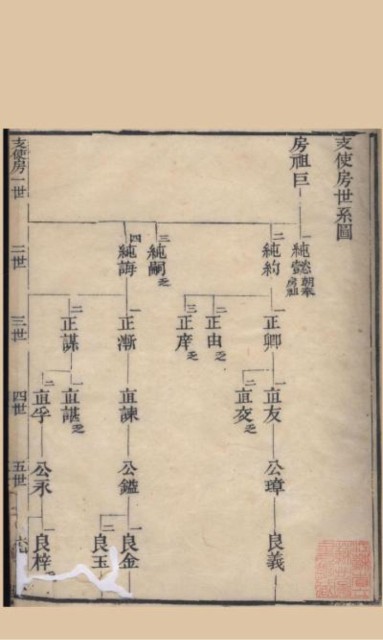 支使房世系圖
支使房一世
房祖巨
二世
一純懿朝奉房祖
二純約
三純嗣乏
四純誨
三世
一正卿
二正由乏
三正庠乏
一正漸
二正謀
四世
一直友
二直交乏
直諫
一直諶乏
二直孚
五世
公璋
公鎰
公永
良義
一良金
二良玉
一良梓